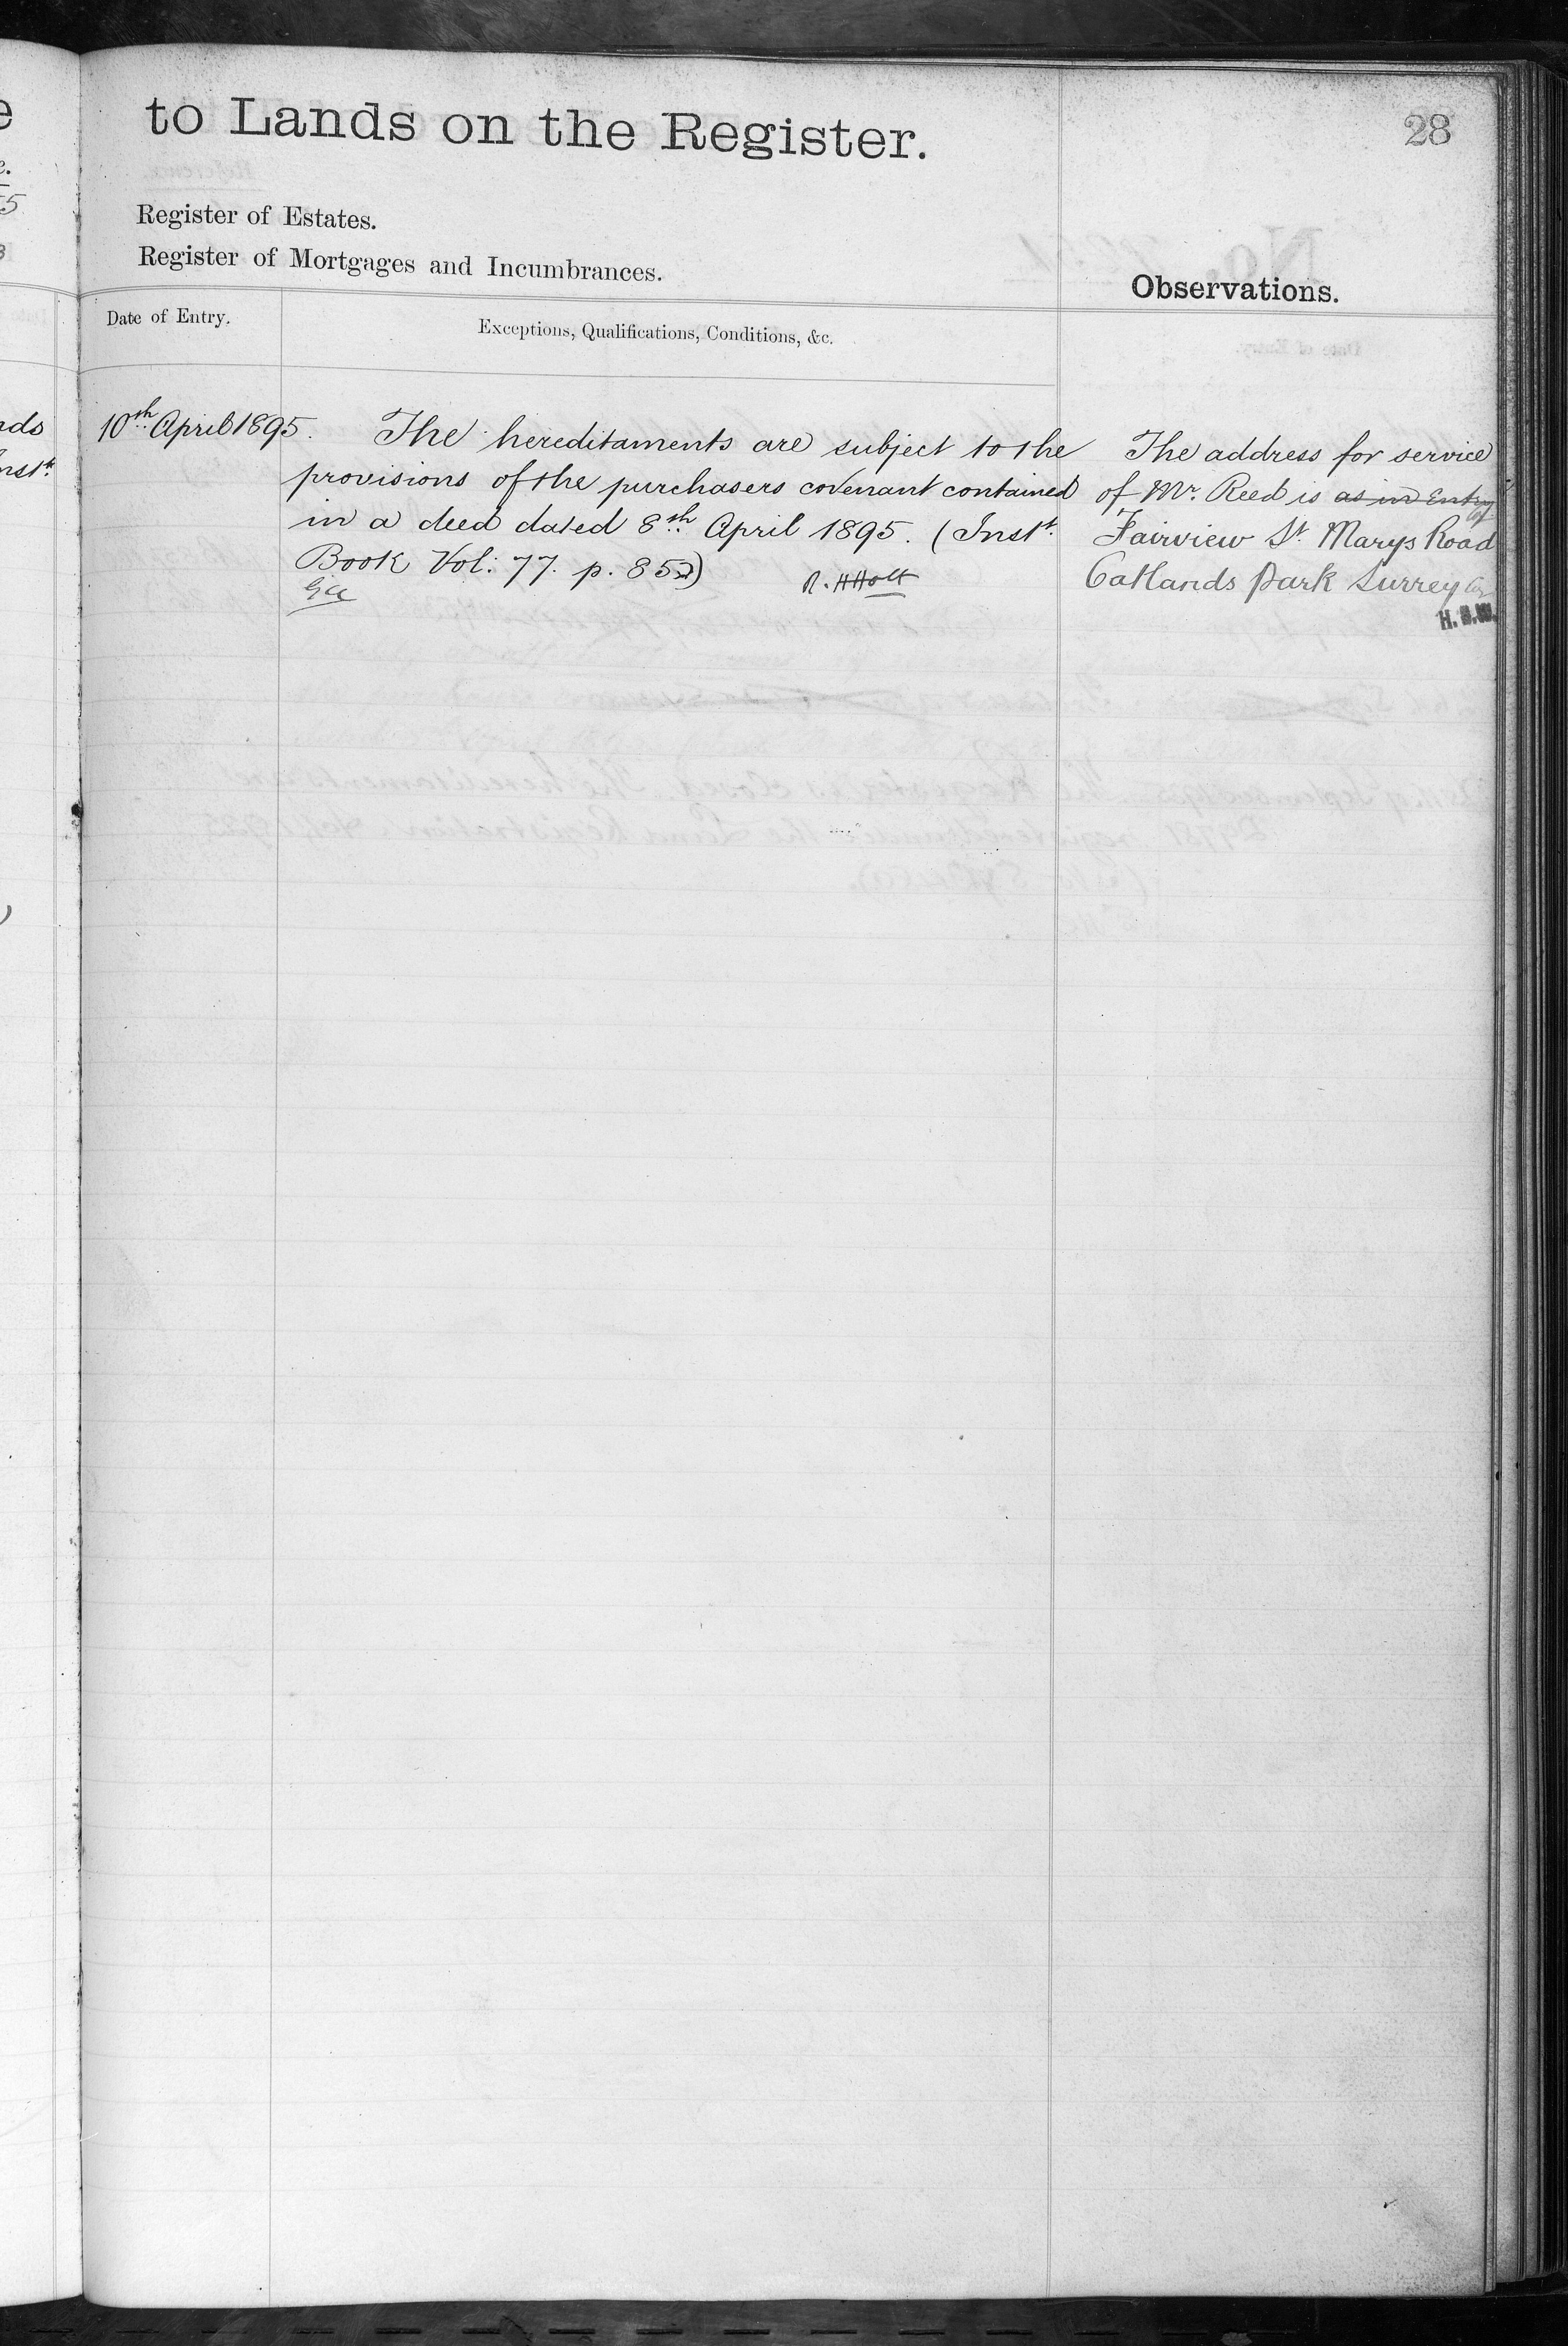 to Lands on the Register.
28
Register of Estates.
Register of Mortgages and Incumbrances.
Observations.
Date of Entry.
Exceptions, Qualifications, Conditions, &c.
10th April 1895. The hereditaments are subject to the
provisions of the purchasers covenant contained
in a deed dated 8th April 1895. (Inst.
Book Vol: 77. p. 852)
R. H Holt
The address for service
of Mr. Reed is as in Entry
Fairview St. Marys Road
Oatlands Park Surrey